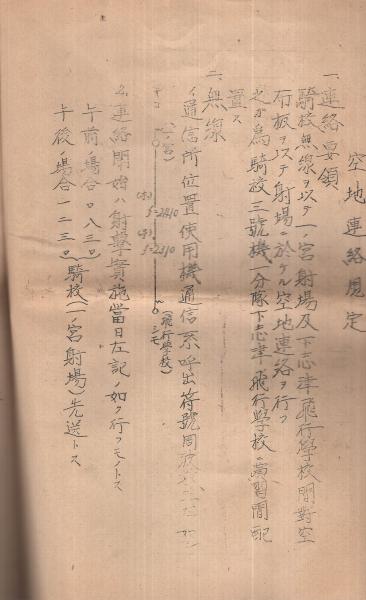 空地連絡規定
一、連絡要領
騎校無線ヲ以テ一ノ宮射場及下志津飛行學校間對空
布板ヲ以テ射場ニ於ケル空地連絡ヲ行フ
之ガ為騎校三號機一分隊下志津飛行學校ニ演習間配
置ス
二、無線
イ、通信所位置使用機通信系呼出符號周波
(一ノ宮)
f=2810
f=2310
シモ
(飛行學校)
ロ、連絡開始ハ射撃實施當日左記ノ如ク行フモノトス
午前ノ場合 〇八三〇
午後ノ場合 一二三〇 騎校(一ノ宮射場)先送トス